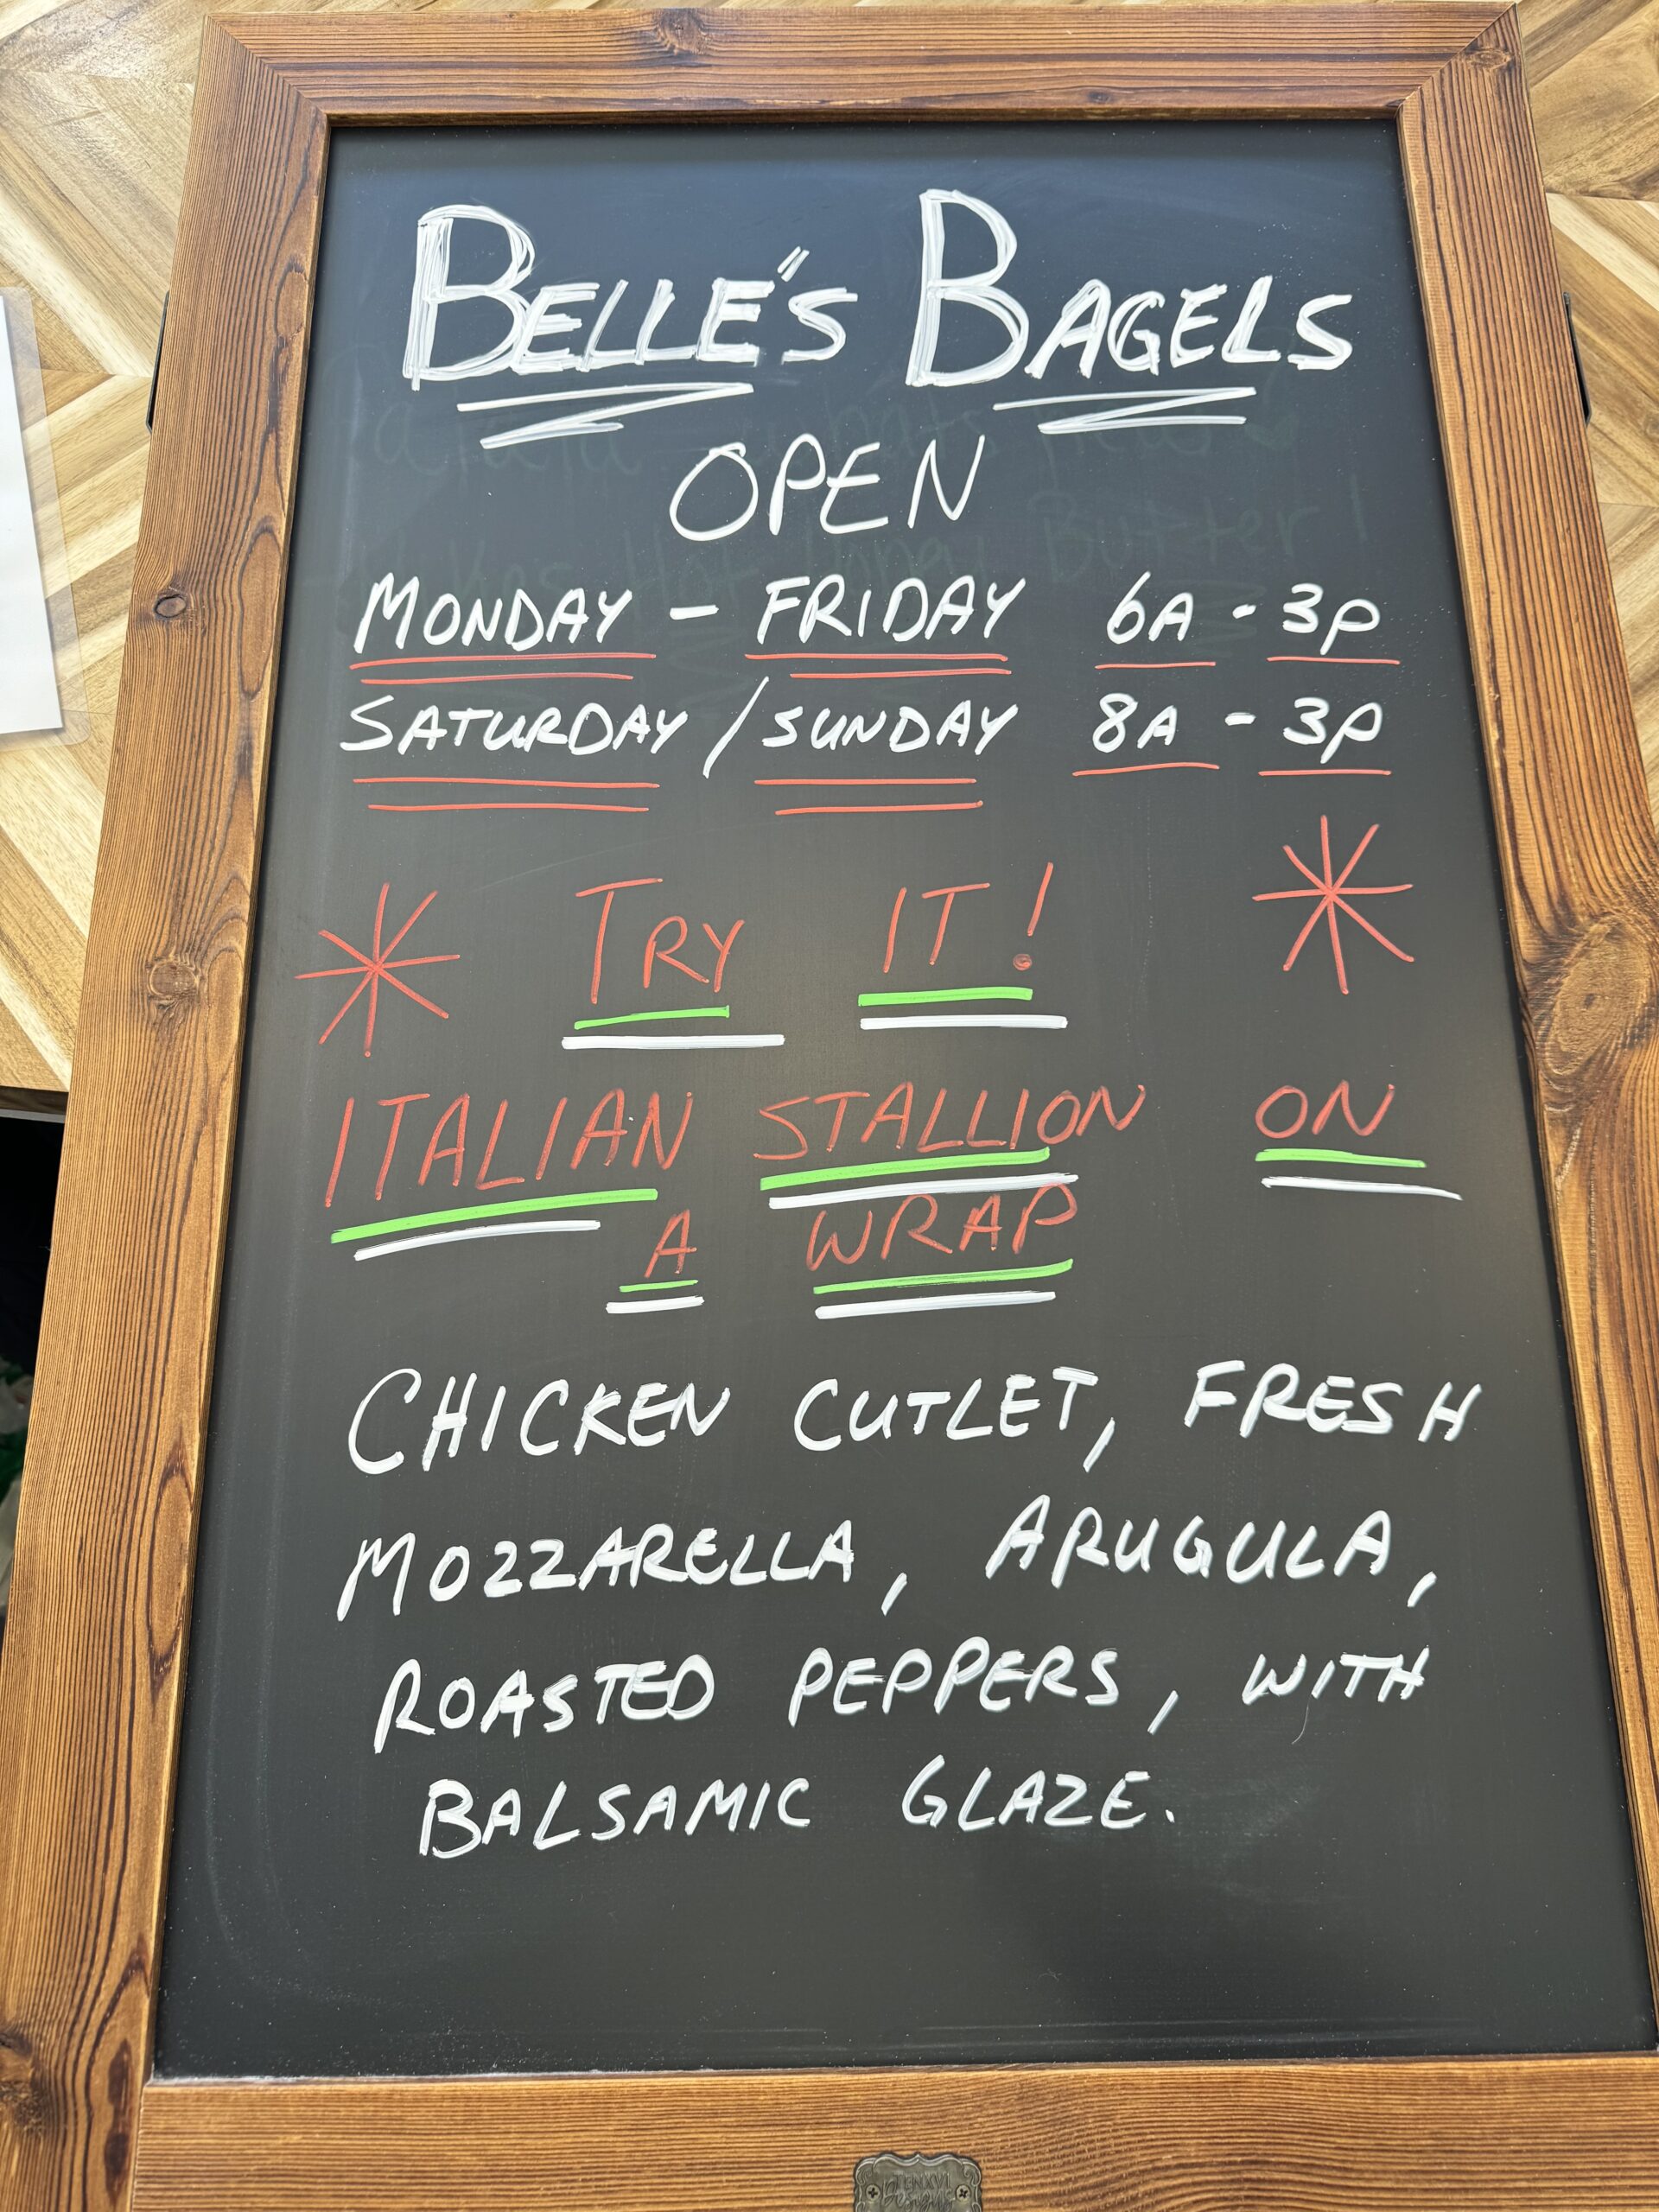 BELLE'S BAGELS
OPEN
MONDAY - FRIDAY 6A - 3P
SATURDAY / SUNDAY 8A - 3P
* TRY IT! *
ITALIAN STALLION ON
A WRAP
CHICKEN CUTLET, FRESH
MOZZARELLA, ARUGULA,
ROASTED PEPPERS, WITH
BALSAMIC GLAZE.